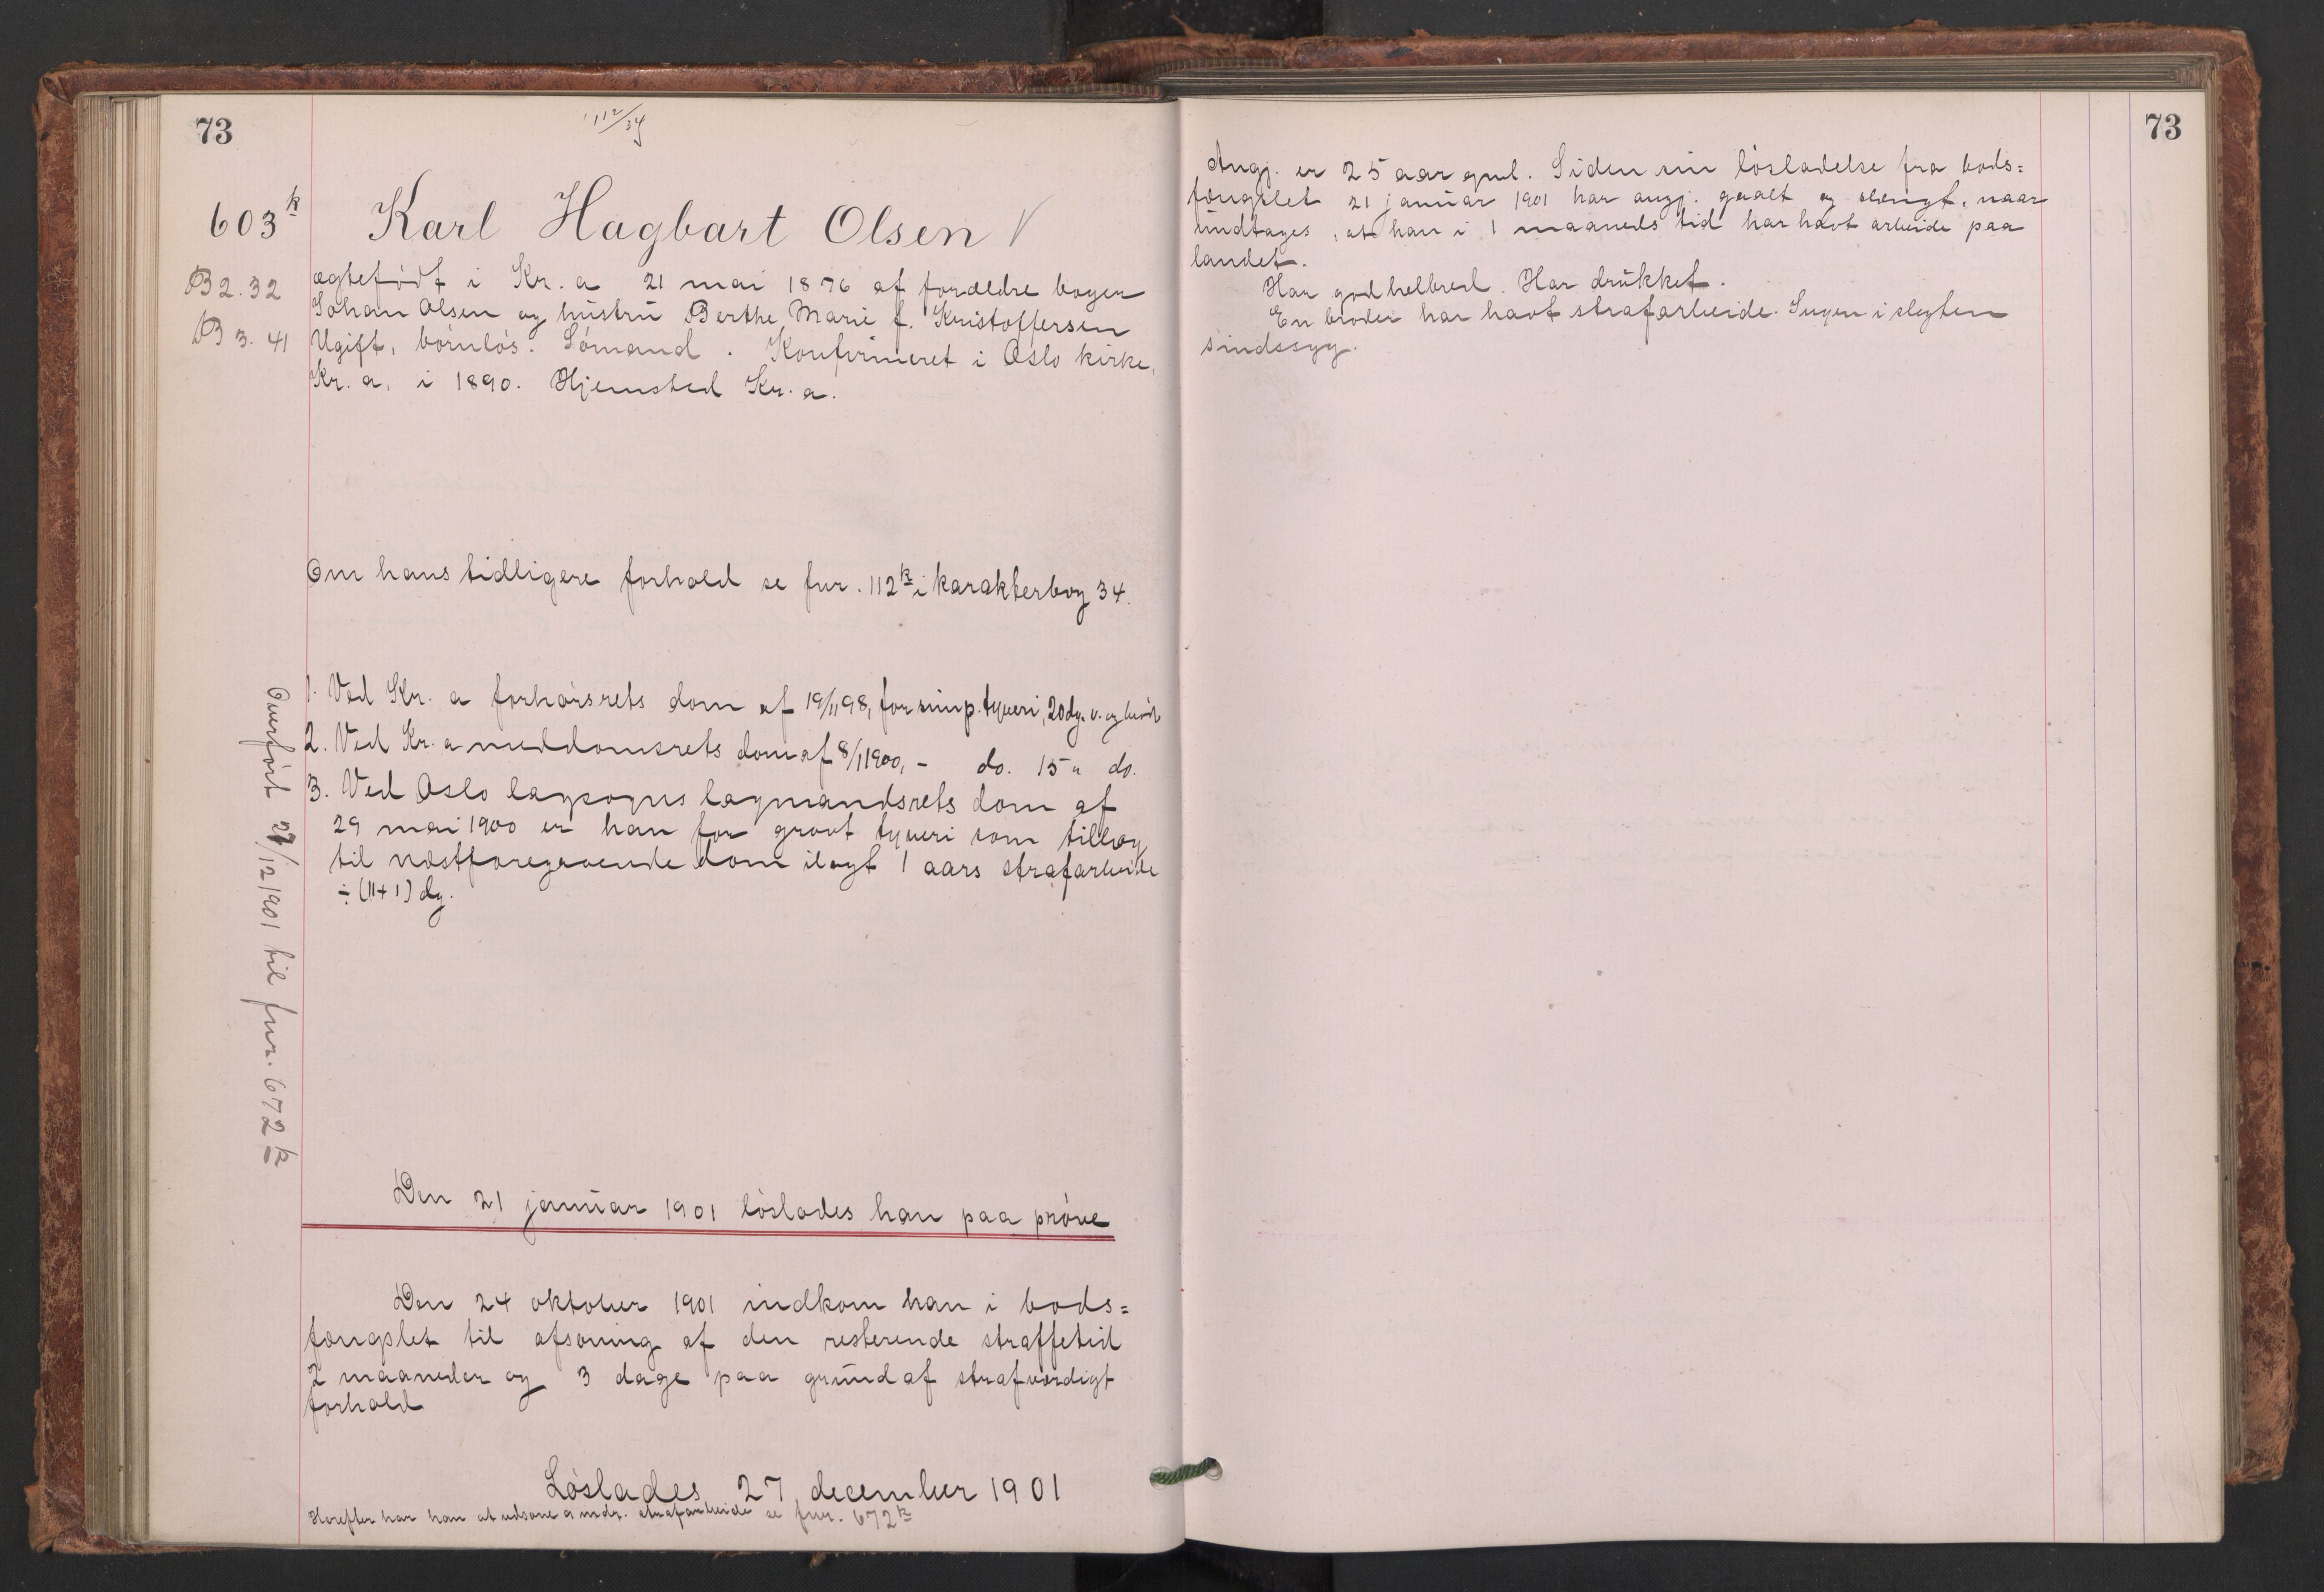 73
112/34
603k Karl Hagbart Olsen V
B 2. 32
B 3. 41
ægtefödt i Kr. a 21 mai 1876 af forældre bager
Johan Olsen og hustru Berthe Marie f. Kristoffersen
Ugift, börnlös. Sömand. Konfirmeret i Oslo kirke,
Kr. a. i 1890. Hjemsted Kr. a.
Om hans tidligere forhold se fnr. 112k i karakterbog 34.
1. Ved Kr. a forhörsrets dom af 19/11 98, for simp. tyveri, 20 dg. v. og bröd
2. Ved Kr. a meddomsrets dom af 8/1 1900, - do. 15 " do.
3. Ved Oslo lagsogns lagmandsrets dom af
29 mai 1900 er han for grovt tyveri som tillæg
til næstforegaaende dom ilagt 1 aars strafarbeide
÷ (11+1) dg.
Overfört 27/12 1901 til fnr. 672k
Den 21 januar 1901 löslades han paa pröve
Den 24 oktober 1901 indkom han i bods=
fængslet til afsoning af den resterende straffetid
2 maaneder og 3 dage paa grund af strafværdigt
forhold
Löslades 27 december 1901
Herefter har han at udsone mdr. strafarbeide se fnr. 672k
73
Angj. er 25 aar gml. Siden sin lösladelse fra bods=
fængslet 21 januar 1901 har angj. gaaet og slængt, naar
undtages, at han i 1 maaneds tid har havt arbeide paa
landet.
Har god helbred. Har drukket.
En broder har havt strafarbeide. Ingen i slegten
sindssyg.